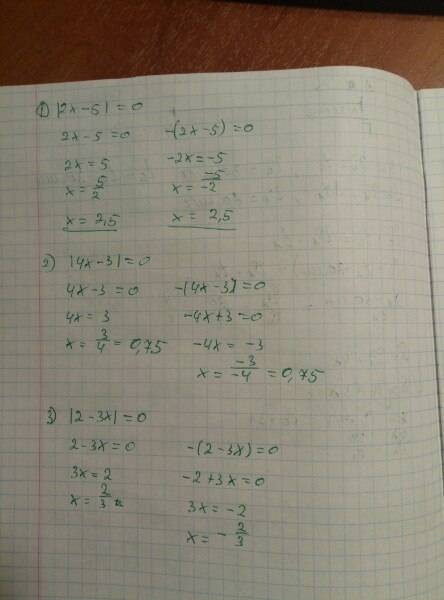 1) |2x-5| = 0
2x-5 = 0 -(2x-5) = 0
2x = 5 -2x = -5
x = 5/2 x = -5/-2
x = 2,5 x = 2,5
2) |4x-3| = 0
4x-3 = 0 -(4x-3) = 0
4x = 3 -4x+3 = 0
x = 3/4 = 0,75 -4x = -3
x = -3/-4 = 0,75
3) |2-3x| = 0
2-3x = 0 -(2-3x) = 0
3x = 2 -2+3x = 0
x = 2/3 3x = -2
x = -2/3